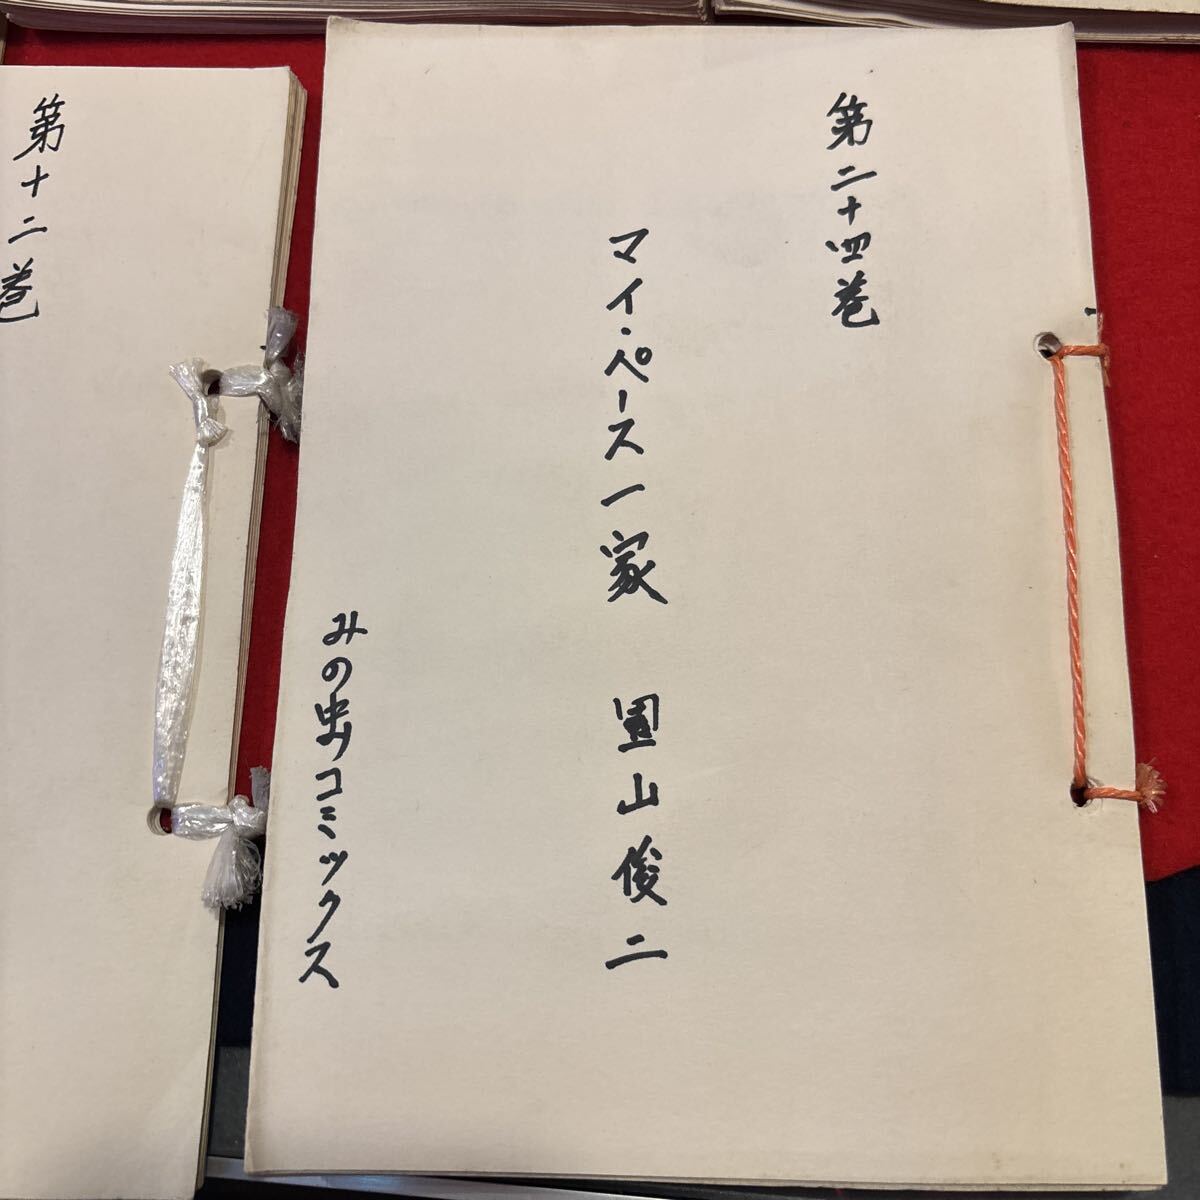 第二十四巻
マイ・ペース一家 園山俊二
みの虫コミックス
第十二巻